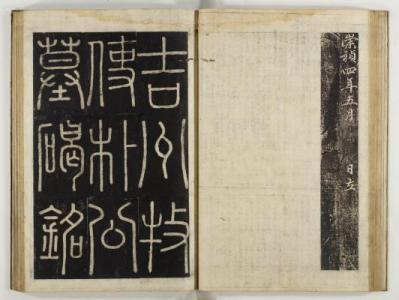 崇禎四年五月 日立
吉州牧
使朴公
墓碣銘